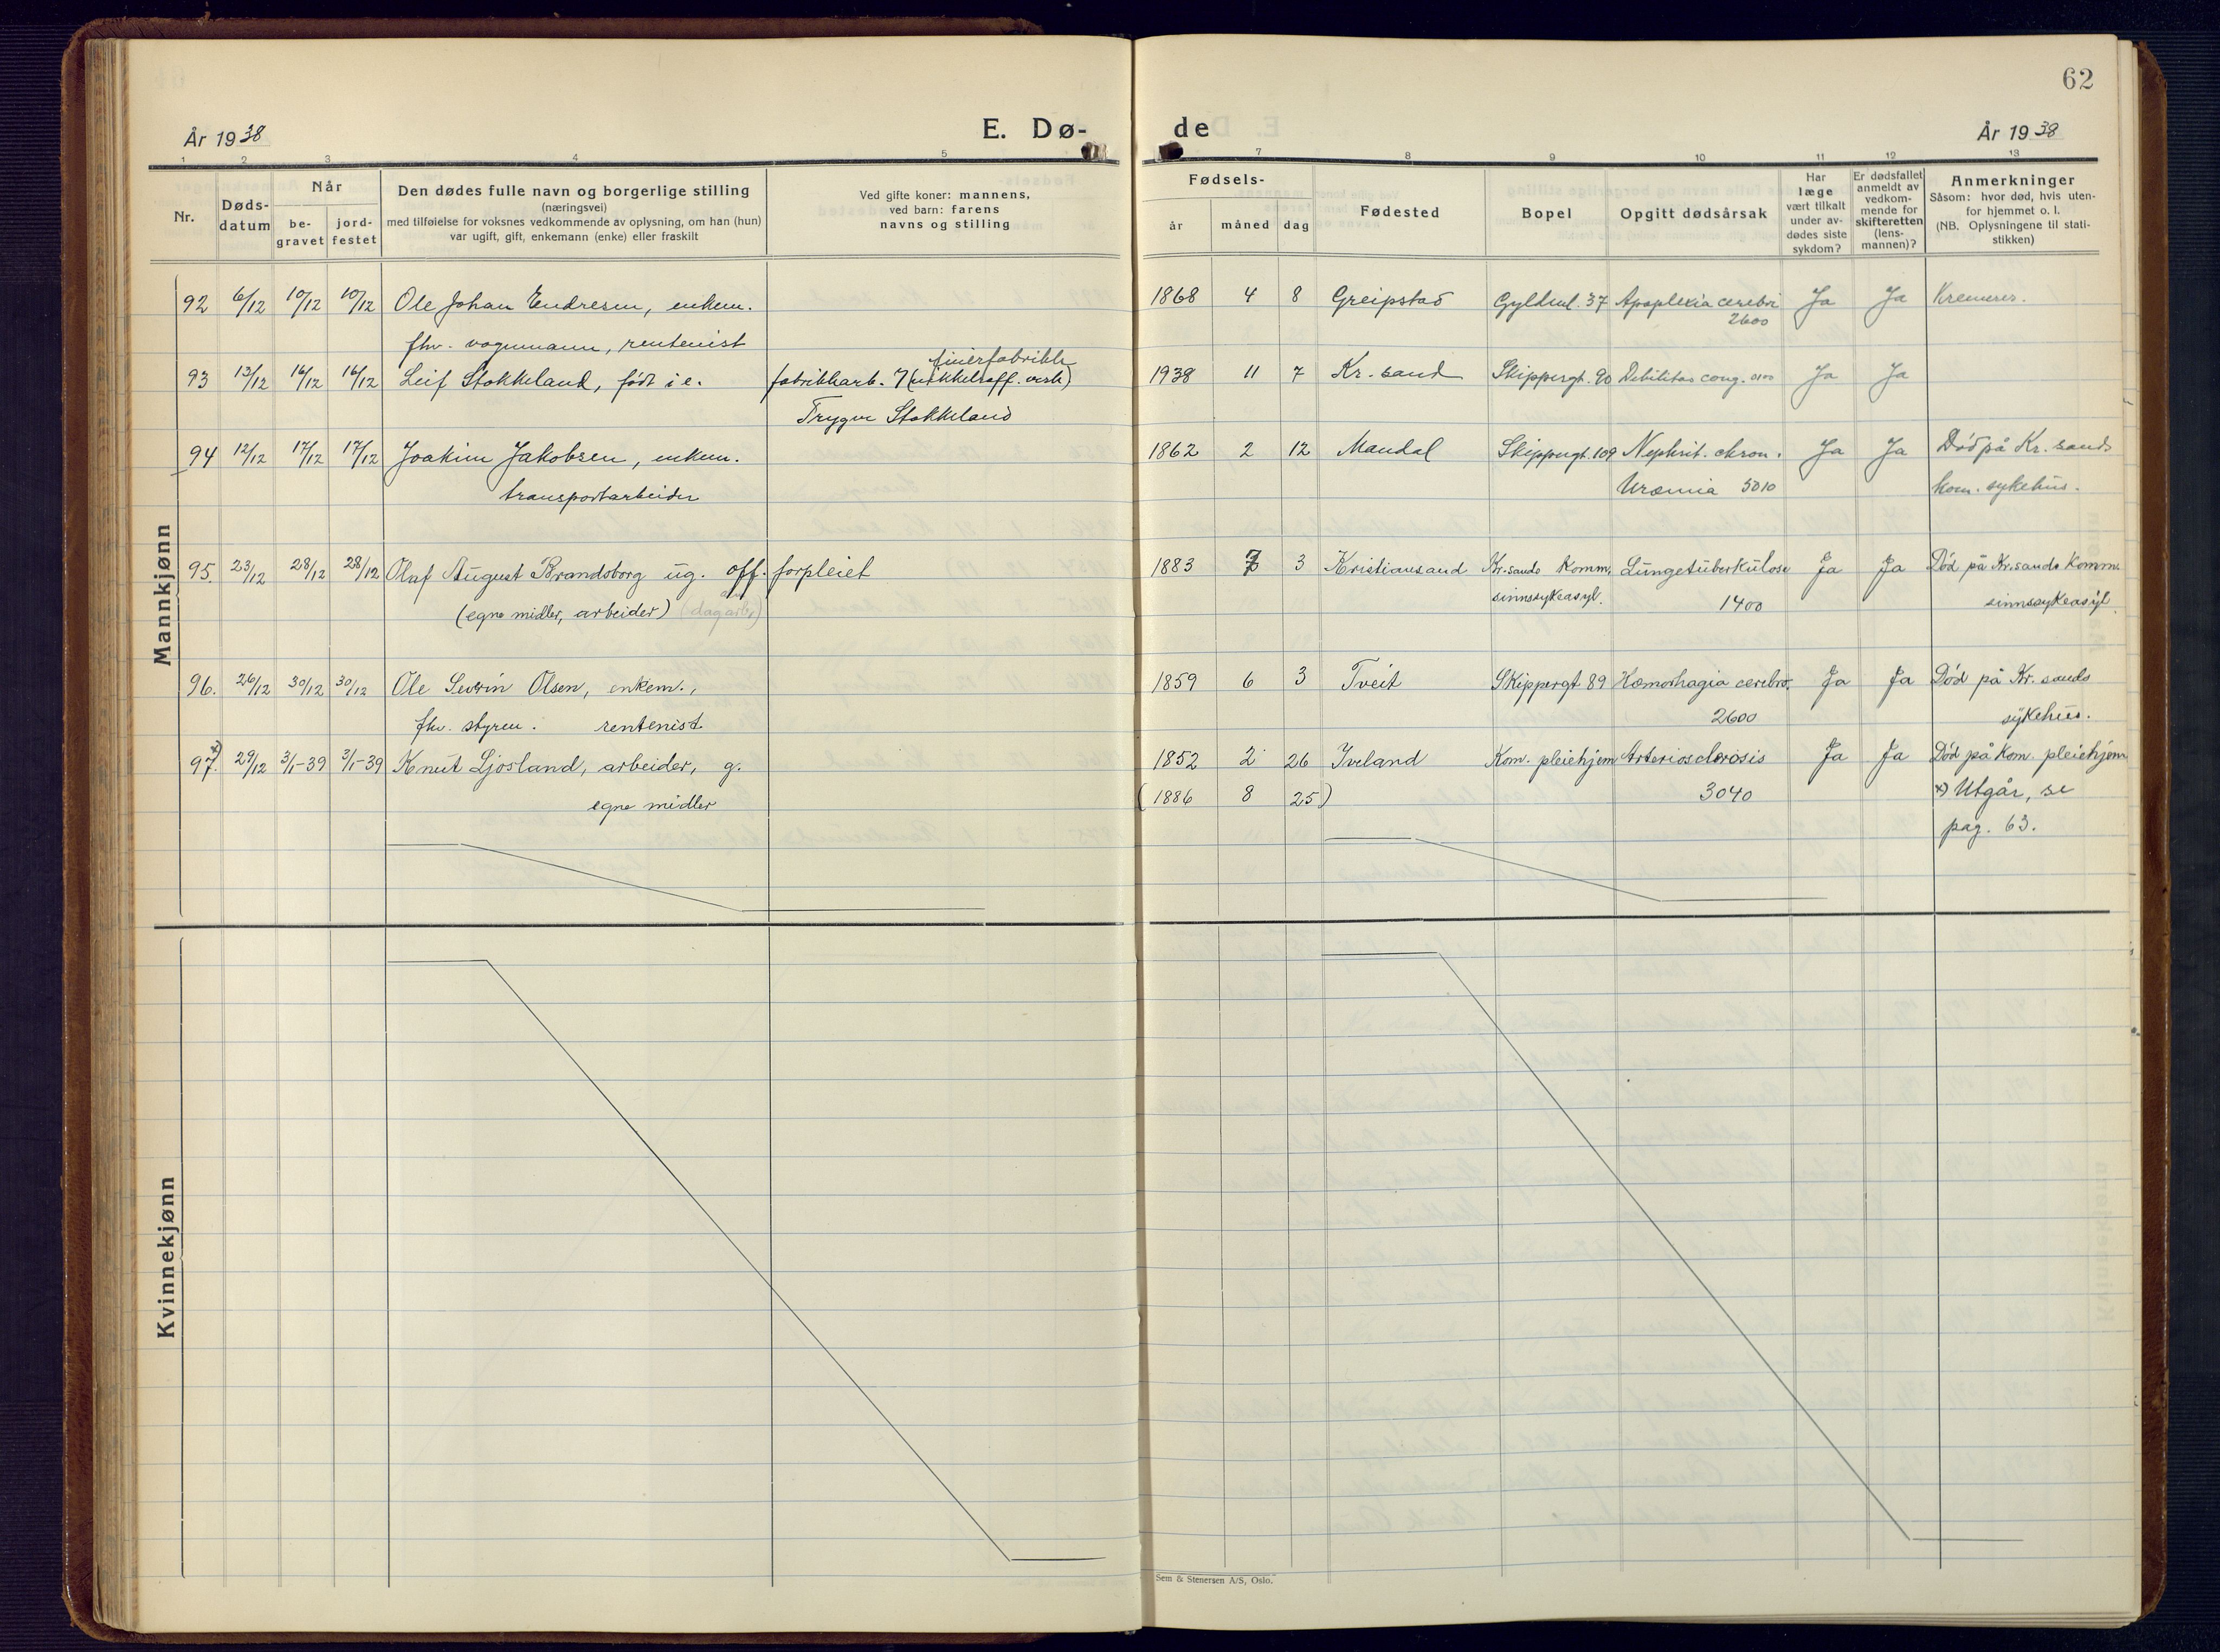 62
År 1938
E. Dø-
de
År 1938
1 2 3 4 5
7 8 9 10 11 12 13
Nr.
Døds-
datum
Når
be-
gravet
jord-
festet
Den dødes fulle navn og borgerlige stilling
(næringsvei)
med tilføielse for voksnes vedkommende av oplysning, om han (hun)
var ugift, gift, enkemann (enke) eller fraskilt
Ved gifte koner: mannens,
ved barn: farens
navns og stilling
Fødsels-
år måned dag
Fødested
Bopel
Opgitt dødsårsak
Har
læge
vært tilkalt
under av-
dødes siste
sykdom?
Er dødsfallet
anmeldt av
vedkom-
mende for
skifteretten
(lens-
mannen)?
Anmerkninger
Såsom: hvor død, hvis uten-
for hjemmet o. l.
(NB. Oplysningene til stati-
stikken)
Mannkjønn
92 6/12 10/12 10/12 Ole Johan Endresen, enkem. 1868 4 8 Greipstad Gyldenl. 37 Apoplexia cerebri Ja Ja Kremeres.
2600
fhv. vognmann, rentenist
finerfabrikk
93 13/12 16/12 16/12 Leif Stokkeland, født i e. fabrikkarb. (nikkelraff. verk) 1938 11 7 Kr. sand Skippergt. 90 Debilitas cong. Ja Ja
Trygve Stokkeland
94 12/12 17/12 17/12 Joakim Jakobsen, enkem. 1862 2 12 Mandal Skippergt. 109 Nephrit. chron. Ja Ja Død på Kr. sands
transportarbeider Uræmia 3010 kom. sykehus.
95. 23/12 28/12 28/12 Olaf August Brandsborg ug. off. forpleiet 1883 7 3 Kristiansand Kr.sands komm. Lungetuberkulose Ja Ja Død på Kr.sands Komm.
sinnssykeasyl.
(egne midler, arbeider) (dagarb.) 1400 sinnssykeasyl.
96. 26/12 30/12 30/12 Ole Severin Olsen, enkem., 1859 6 3 Tveit Skippergt 89 Hæmorhagia cerebro. Ja Ja Død på Kr. sands
fhv. styrm. rentenist 2600 sykehus.
97. x) 29/12 3/1-39 3/1-39 Knut Ljosland, arbeider, g. 1852 2 26 Iveland Kom. pleiehjem Arteriosclerosis Ja Ja Død på Kom. pleiehjem
egne midler (1886 8 25) 3040 x) Utgår, se
pag. 63.
Kvinnekjønn
Sem & Stenersen A/S, Oslo.